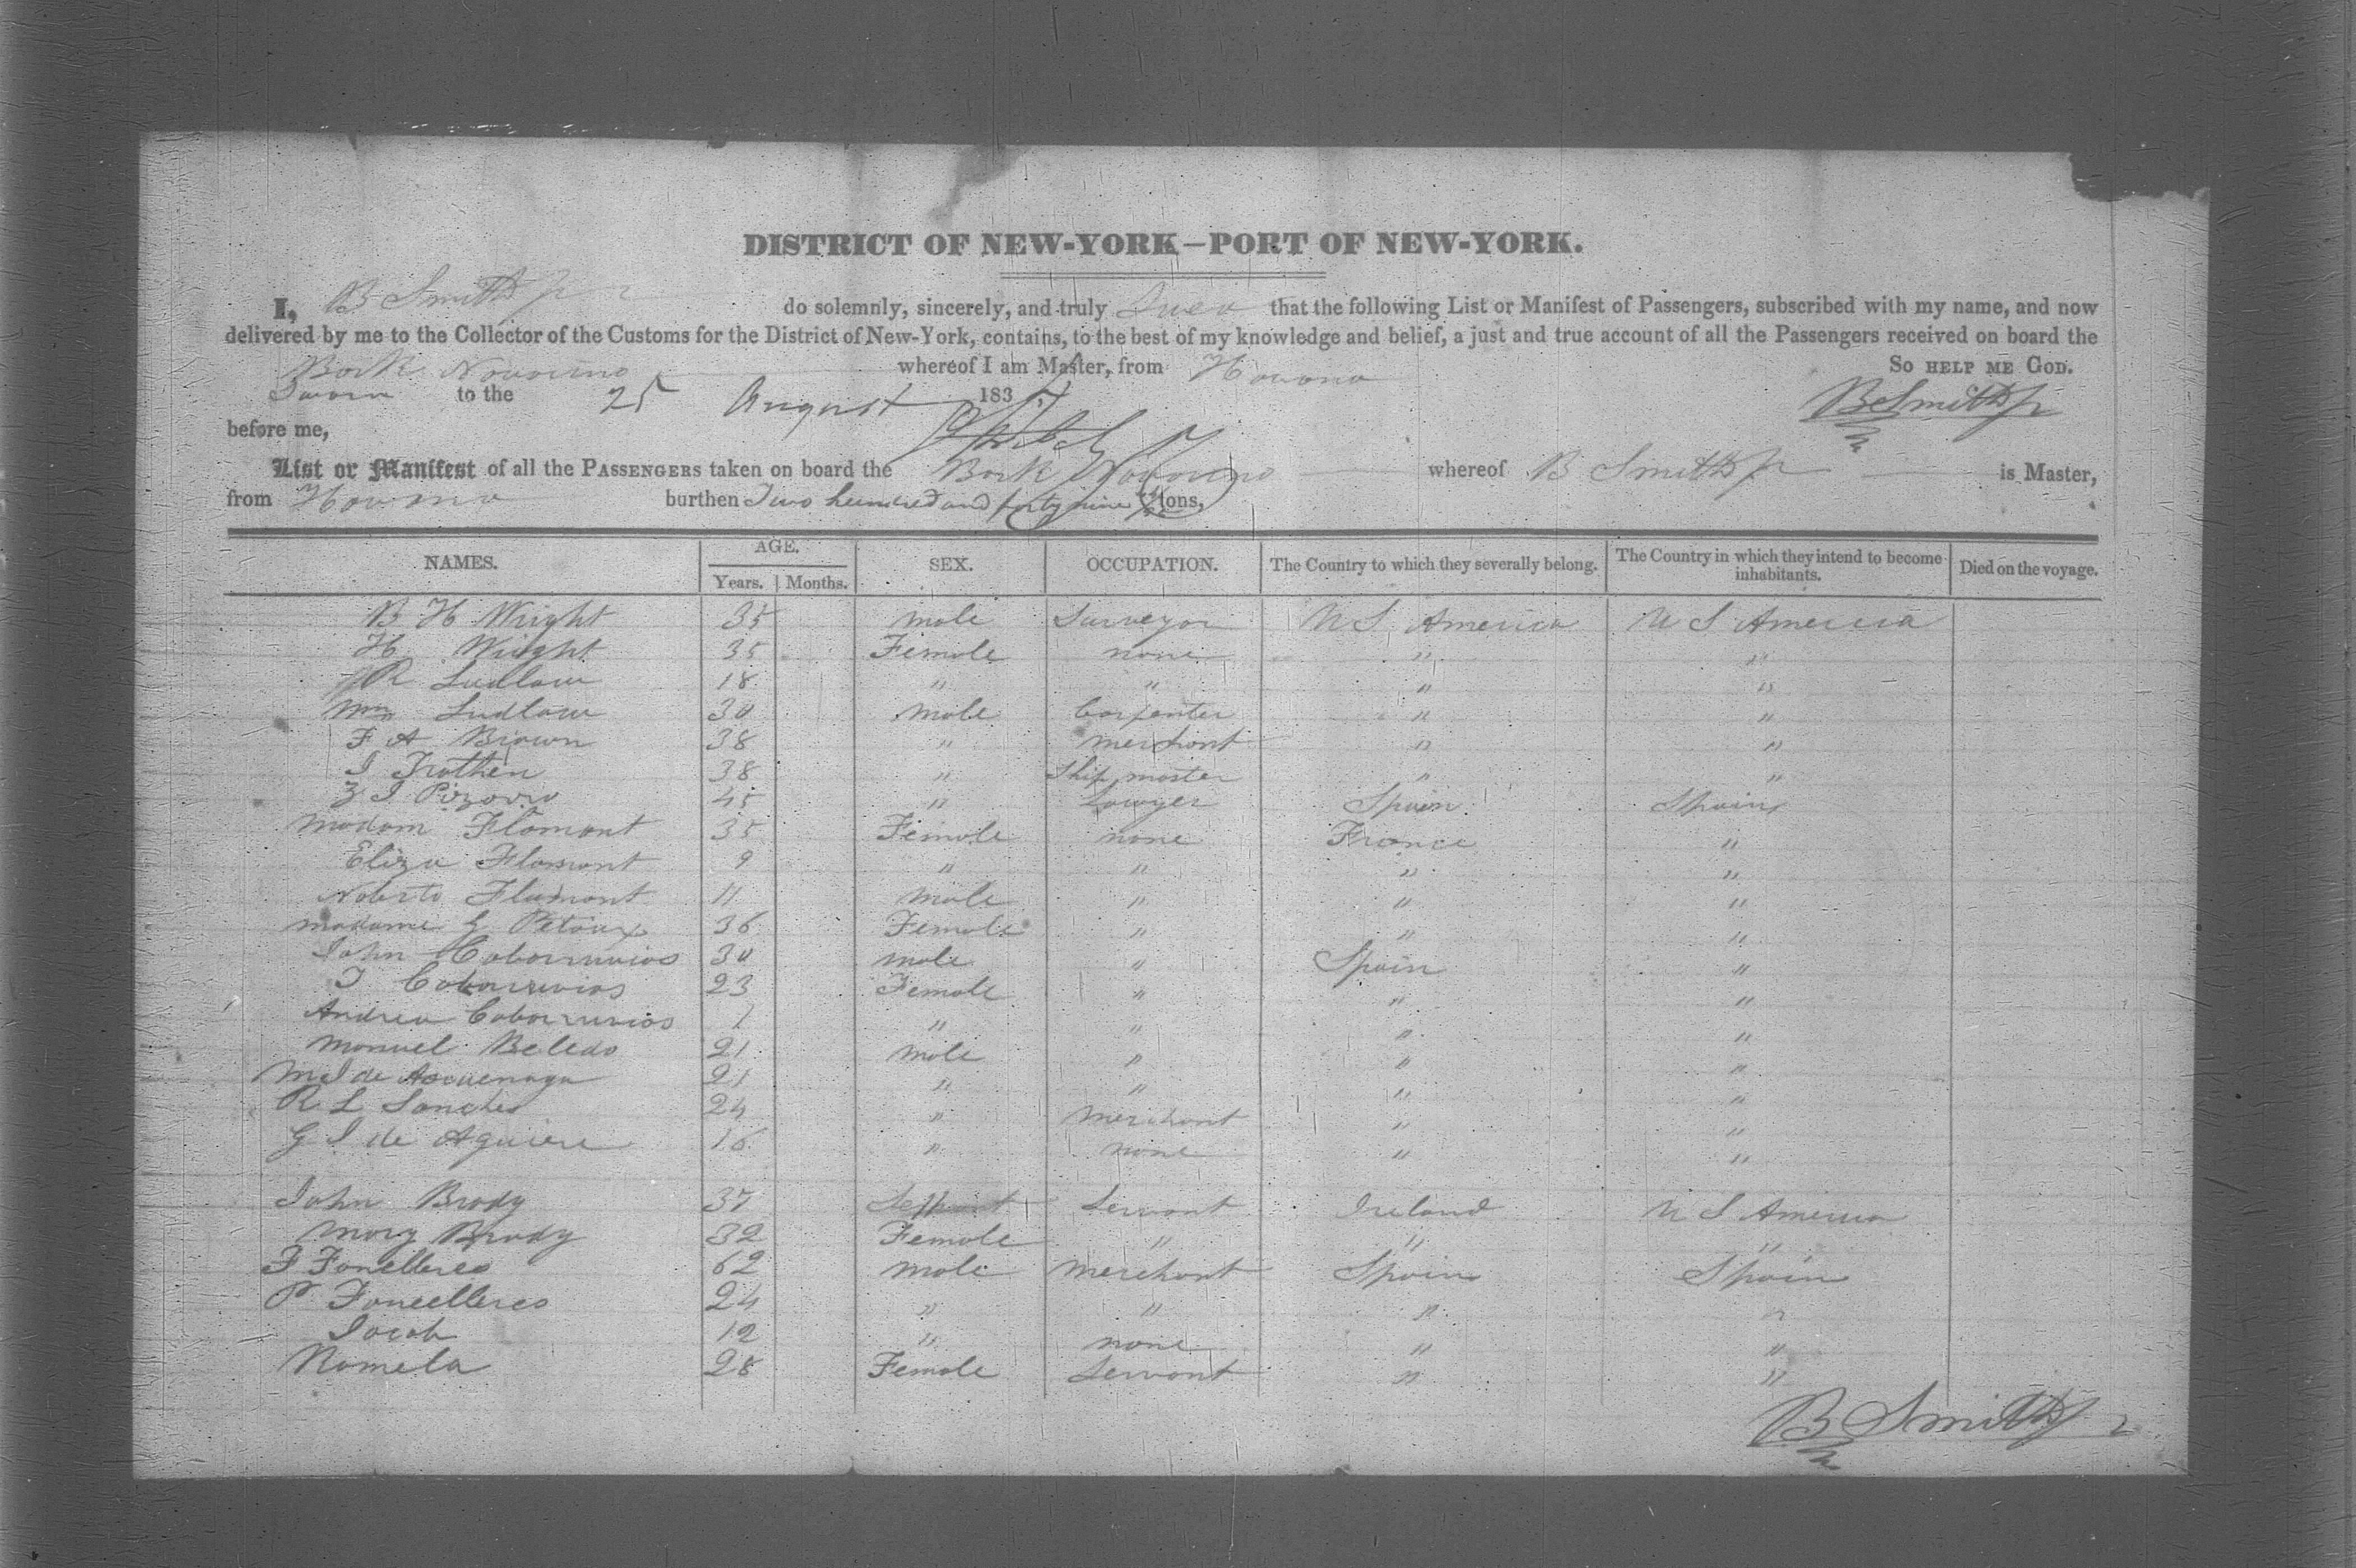 DISTRICT OF NEW-YORK—PORT OF NEW-YORK.
I, B Smith Jr do solemnly, sincerely, and truly that the following List or Manifest of Passengers, subscribed with my name, and now
delivered by me to the Collector of the Customs for the District of New-York, contains, to the best of my knowledge and belief, a just and true account of all the Passengers received on board the
Bark Navarino whereof I am Master, from Havana So HELP ME GOD.
Sworn to the 25 August 1837 B Smith Jr
before me,
List or Manifest of all the PASSENGERS taken on board the Bark Navarino whereof B Smith Jr is Master,
from Havana burthen Two hundred and forty nine tons,
NAMES. AGE. SEX. OCCUPATION. The Country to which they severally belong. The Country in which they intend to become inhabitants. Died on the voyage.
Years. Months.
B H Wright 35 male Surveyor U S America U S America
H Wright 35 Female none " "
R Ludlow 18 " " " "
Wm Ludlow 30 male Carpenter " "
F A Brown 38 " merchant " "
J Trathen 38 " Ship master " "
Z J Pizarro 45 " Lawyer Spain Spain
Madam Flamant 35 Female none France "
Eliza Flamant 9 " " " "
Noberto Flamant 11 male " " "
madame G Petoux 36 Female " " "
John Cabarruvias 30 male " Spain "
T Cabarruvias 23 Female " " "
Andrea Cabarruvias 1 " " " "
Manuel Beledo 21 male " " "
M J de Ascuenaga 21 " " " "
R L Sanches 24 " Merchant " "
G J de Aguiere 16 " none " "
John Brady 37 Servant Ireland U S America
Mary Brady 32 Female " " "
F Fonelleres 62 male Merchant Spain Spain
P Foncelleres 24 " " " "
Jacob 12 " none " "
Namela 28 Female Servant " "
B Smith Jr